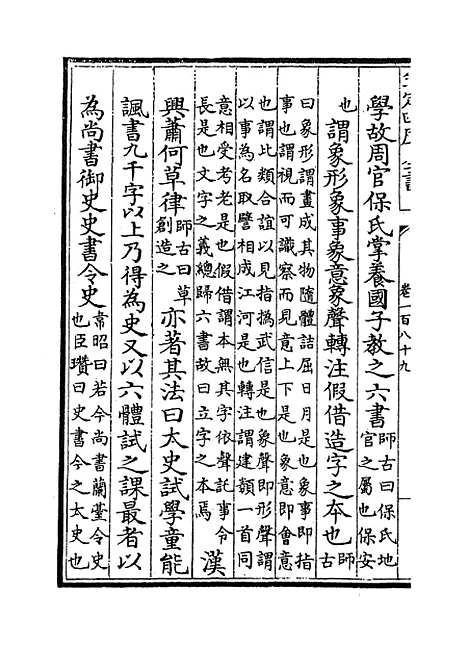 卷一百八十九
學故周官保氏掌養國子教之六書師古曰保氏地
官之屬也保安
也謂象形象事象意象聲轉注假借造字之夲也師
古
曰象形謂畫成其物隨體詰屈日月是也象事即指
事也謂視而可識察而見意上下是也象意即會意
也謂比類合誼以見指撝武信是也象聲即形聲謂
以事為名取譬相成江河是也轉注謂建類一首同
意相受考老是也假借謂本無其字依聲託事令
長是也文字之義總歸六書故曰立字之本焉漢
興蕭何草律師古曰草
創造之亦著其法曰太史試學童能
諷書九千字以上乃得為史又以六體試之課最者以
為尚書御史史書令史韋昭曰若今尚書蘭臺令史
也臣瓚曰史書今之太史也